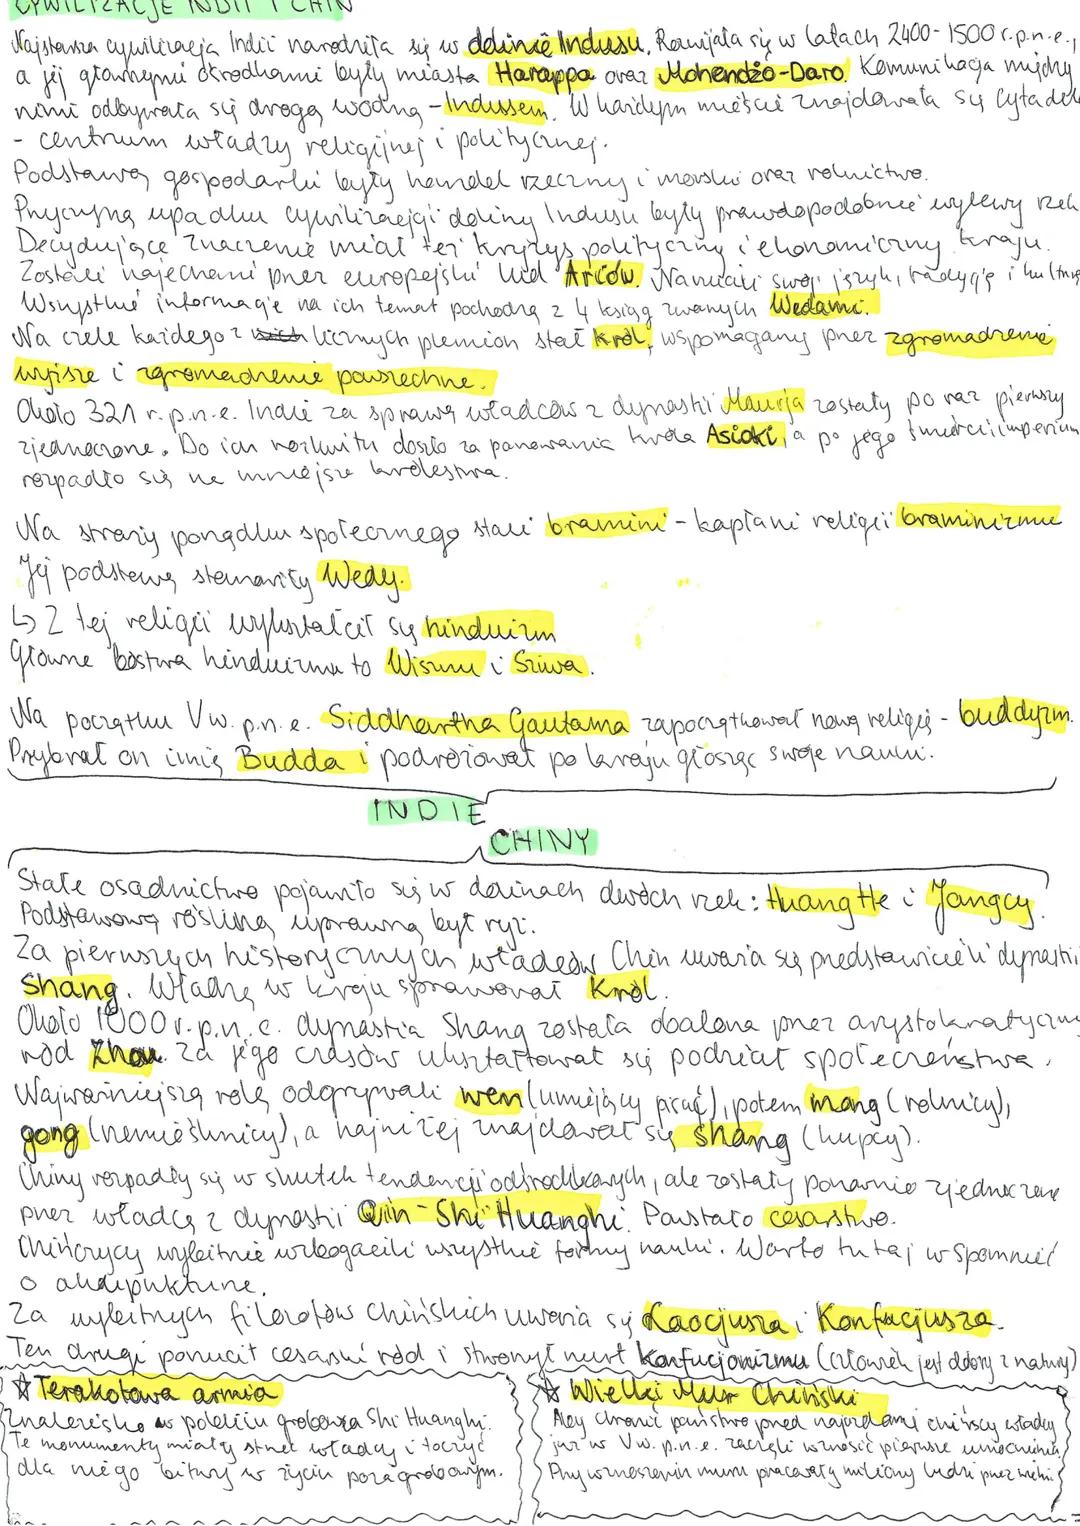 CYWILIZACJE INDII I CHIN
Najstarsza cywilizacja Indii narodziła się w dolinie Indusu. Rozwijała się w latach 2400-1500 r.p.n.e.,
a jej głównymi ośrodkami były miasta Harappa oraz Mohendżo-Daro. Komunikacja między
nimi odbywała się drogą wodną - Indusem. W każdym mieście znajdowała się cytadela
- centrum władzy religijnej i politycznej.
Podstawą gospodarki były handel rzeczny i morski oraz rolnictwo.
Przyczyną upadku cywilizacji doliny Indusu były prawdopodobnie wylewy rzek
Decydujące znaczenie miał też kryzys polityczny i ekonomiczny kraju.
Zostali najechani przez europejski lud Ariów. Narzucili swój język, tradycję i kulturę
Wszystkie informacje na ich temat pochodzą z 4 ksiąg zwanych Wedami.
Na czele każdego z licznych plemion stał król, wspomagany przez zgromadzenie
wyższe i zgromadzenie powszechne.
Około 321 r.p.n.e. Indie za sprawą władców z dynastii Maurja zostały po raz pierwszy
zjednoczone. Do ich rozkwitu doszło za panowania króla Asioki, a po jego śmierci imperium
rozpadło się na mniejsze królestwa.
Na straży porządku społecznego stali bramini - kapłani religii braminizmu
Jej podstawę stanowiły Wedy.
↳ Z tej religii wykształcił się hinduizm
Główne bóstwa hinduizmu to Wisznu i Sziwa.
Na początku V w. p.n.e. Siddhartha Gautama zapoczątkował nową religię - buddyzm.
Przybrał on imię Budda i podróżował po kraju głosząc swoje nauki.
INDIE
CHINY
Stałe osadnictwo pojawiło się w dolinach dwóch rzek: Huang He i Jangcy.
Podstawową rośliną uprawną był ryż.
Za pierwszych historycznych władców Chin uważa się przedstawicieli dynastii
Shang. Władzę w kraju sprawował Król.
Około 1000 r.p.n.e. dynastia Shang została obalona przez arystokratyczny
ród Zhou. Za jego czasów ukształtował się podział społeczeństwa.
Najważniejszą rolę odgrywali wen (umiejący pisać), potem mong (rolnicy),
gong (rzemieślnicy), a najniżej znajdował się shang (kupcy).
Chiny rozpadły się w skutek tendencji odśrodkowych, ale zostały ponownie zjednoczone
przez władcę z dynastii Qin - Shi Huanghi. Powstało cesarstwo.
Chińczycy wybitnie wzbogacili wszystkie formy nauki. Warto tutaj wspomnieć
o akupunkturze.
Za wybitnych filozofów chińskich uważa się Laocjusza i Konfucjusza.
Ten drugi porzucił cesarski ród i stworzył nurt konfucjonizmu (człowiek jest dobry z natury)
☆ Terakotowa armia
Znalezisko w pobliżu grobowca Shi Huanghi.
Te monumenty miały strzec władcy i toczyć
dla niego bitwy w życiu pozagrobowym.
☆ Wielki Mur Chiński
Aby chronić państwo przed najazdami chińscy władcy
już w V w. p.n.e. zaczęli wznosić pierwsze umocnienia.
Przy wznoszeniu muru pracowały miliony ludzi przez wieki